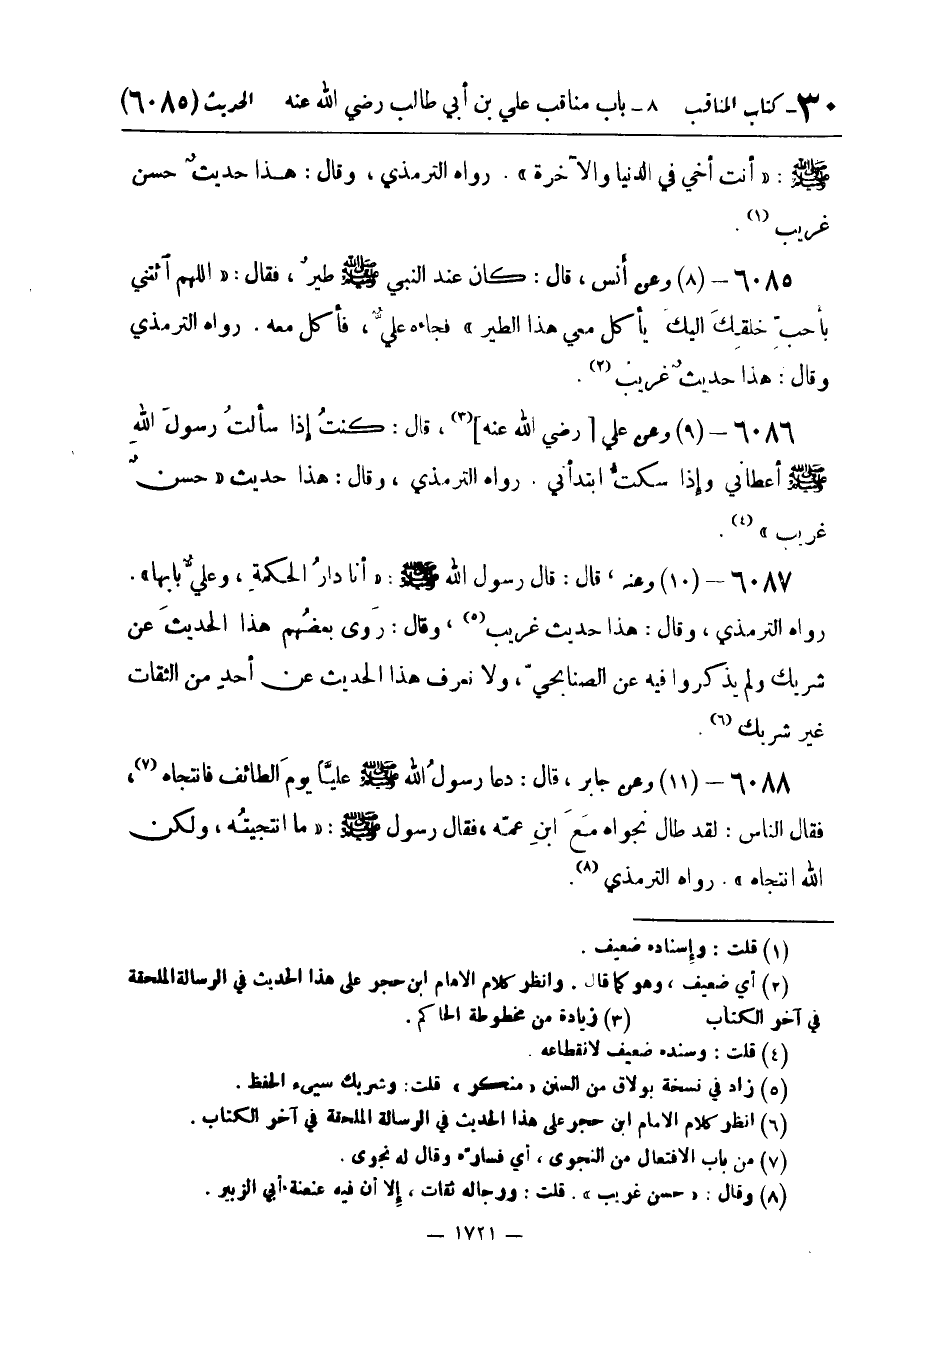 ٣٠ـ كتاب المناقب ٨ ـ باب مناقب علي بن أبي طالب رضي الله عنه الحديث (٦٠٨٥)
ﷺ : « أنت أخي في الدنيا والآخرة » . رواه الترمذي ، وقال : هـذا حديثٌ حسن
غريب (١) .
٦٠٨٥ – (٨) وعن أنس ، قال : كان عند النبي ﷺ طيرٌ ، فقال : « اللهم آئتني
بأحبِّ خلقِكَ اليكَ يأكل معي هذا الطير » فجاءه عليٌّ ، فأكل معه . رواه الترمذي
وقال : هذا حديثٌ غريب (٢) .
٦٠٨٦ – (٩) وعن علي [ رضي الله عنه ](٣) ، قال : كنتُ إذا سألتُ رسولَ اللهِ
ﷺ أعطاني وإذا سكتُّ ابتدأني . رواه الترمذي ، وقال : هذا حديث « حسنٌ
غريب » (٤) .
٦٠٨٧ – (١٠) وعنه ، قال : قال رسول الله ﷺ : « أنا دارُ الحكمةِ ، وعليٌّ بابها» .
رواه الترمذي ، وقال : هذا حديث غريب(٥) ، وقال : رَوى بعضُهم هذا الحديثَ عن
شريك ولم يذكروا فيه عن الصنابحيّ ، ولا نعرف هذا الحديث عن أحدٍ من الثقات
غير شريك (٦) .
٦٠٨٨ – (١١) وعن جابر ، قال : دعا رسولُ الله ﷺ عليَّاً يومَ الطائف فانتجاه (٧) ،
فقال الناس : لقد طال نجواه مَعَ ابنِ عمّه ،فقال رسول ﷺ : « ما انتجيتُه ، ولكن
الله انتجاه » . رواه الترمذي (٨) .
(١) قلت : وإسناده ضعيف .
(٢) أي ضعيف ، وهو كما قال . وانظر كلام الامام ابن حجر على هذا الحديث في الرسالة الملحقة
في آخر الكتاب (٣) زيادة من مخطوطة الحاكم .
(٤) قلت : وسنده ضعيف لانقطاعه .
(٥) زاد في نسخة بولاق من السنن « منكر » ، قلت: وشريك سيىء الحفظ .
(٦) انظر كلام الامام ابن حجر على هذا الحديث في الرسالة الملحقة في آخر الكتاب .
(٧) من باب الافتعال من النجوى ، أي فسارّه وقال له نجوى .
(٨) وقال : « حسن غريب » . قلت : ورجاله ثقات ، إلا أن فيه عنعنة أبي الزبير .
— ١٧٢١ —